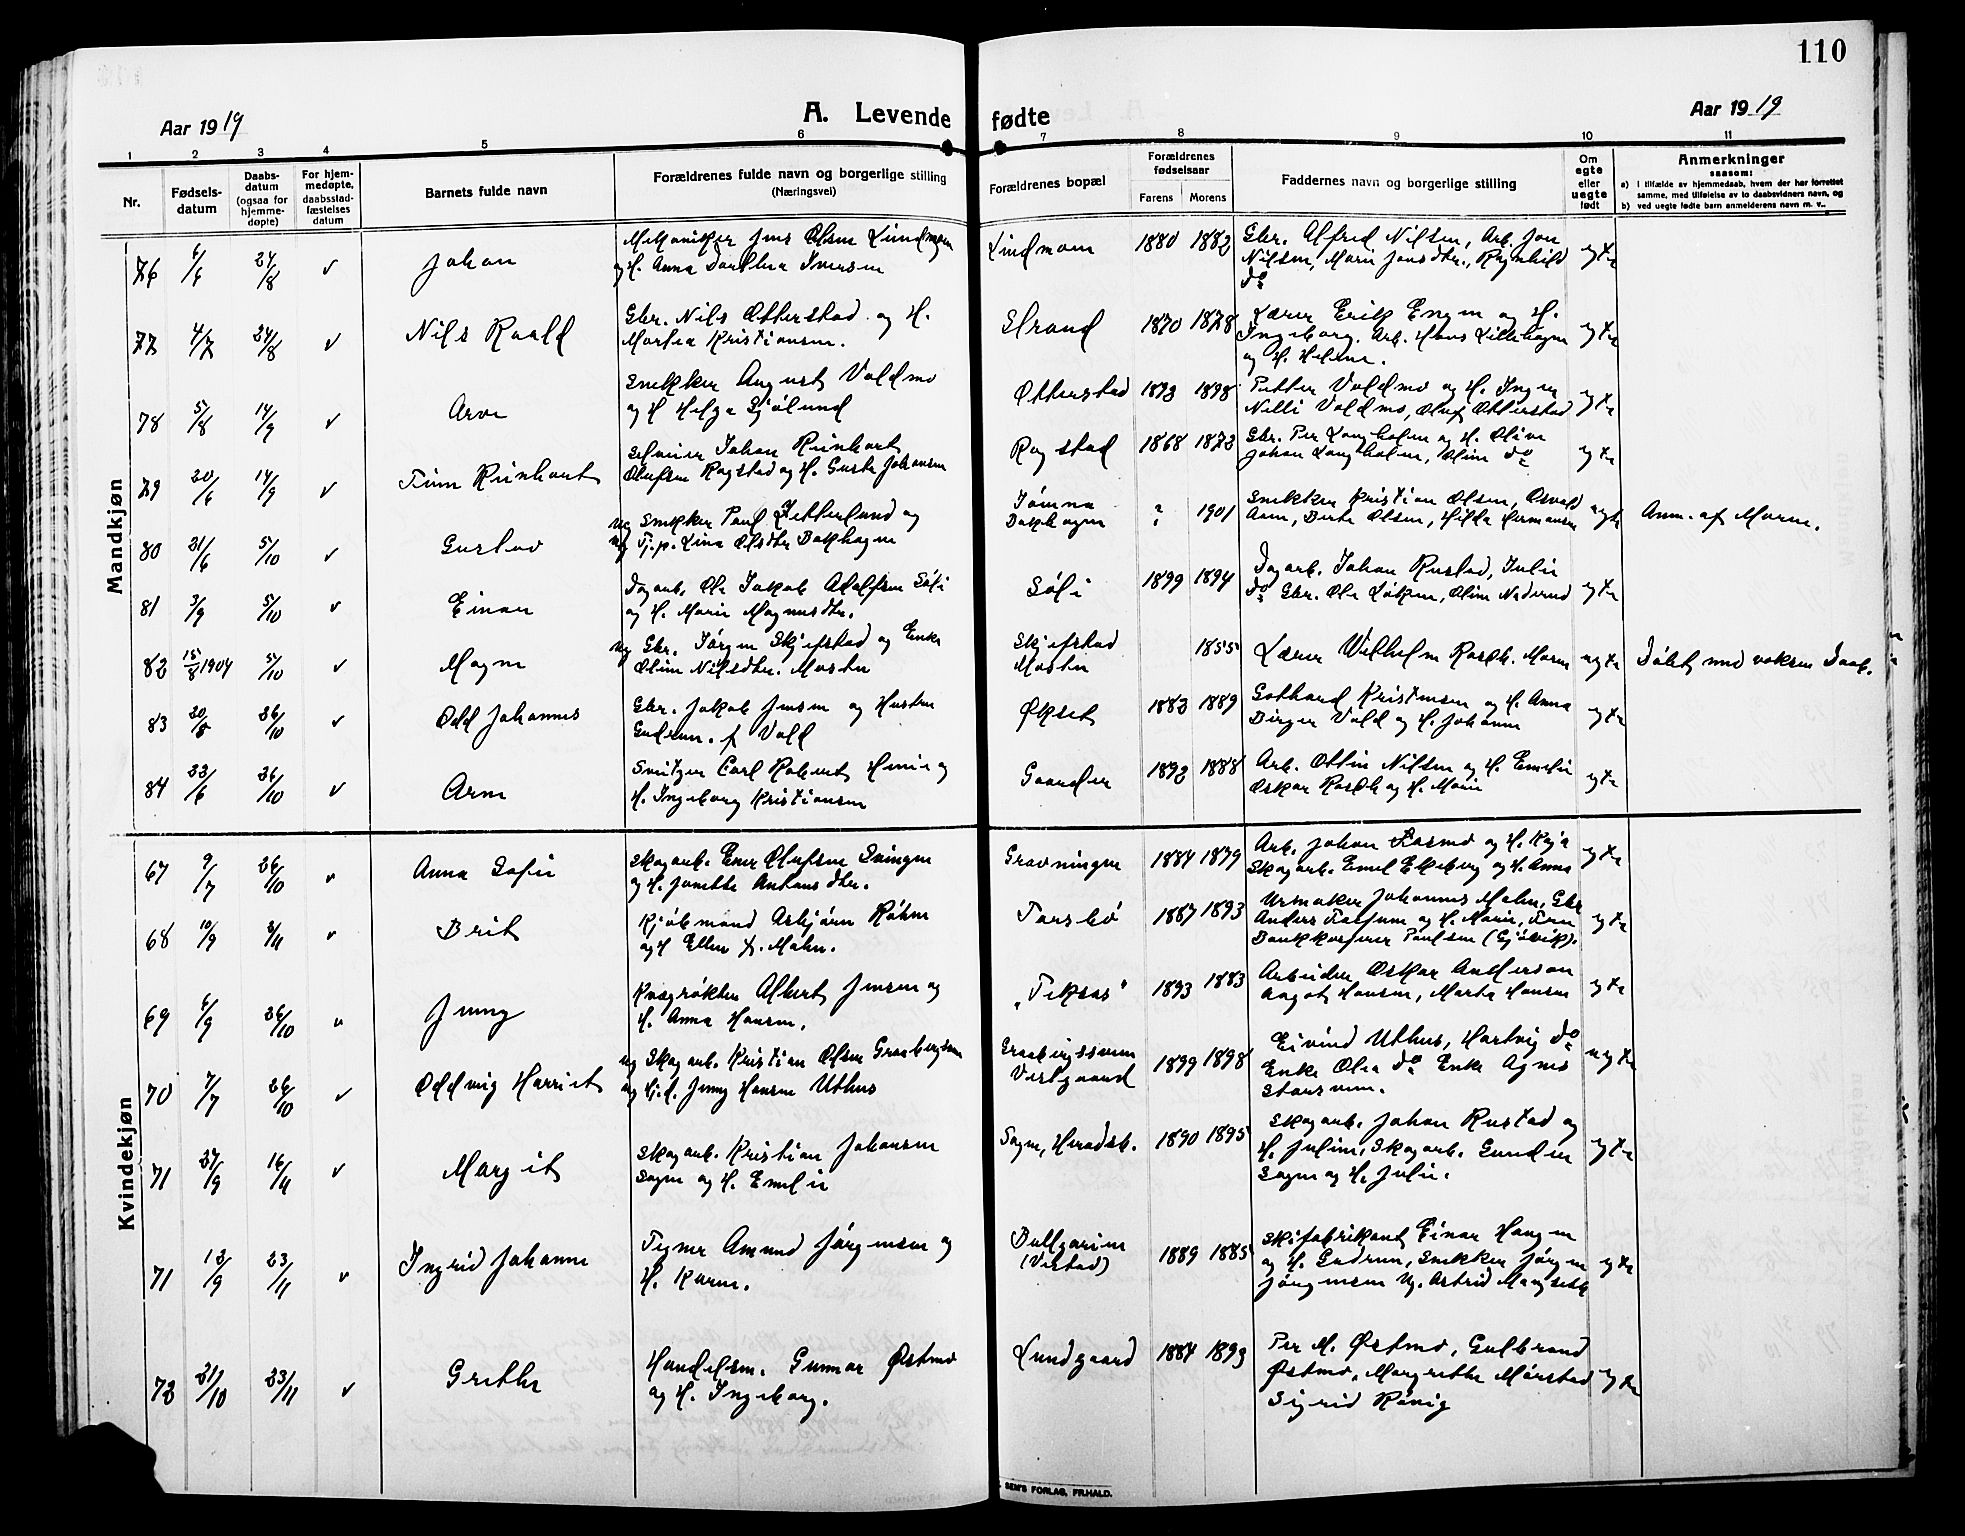 110
Aar 1919
A. Levende fødte
Aar 1919
1 2 3 4 5 6 7 8 9 10 11
Nr.
Fødsels-
datum
Daabs-
datum
(ogsaa for
hjemme-
døpte)
For hjem-
medøpte,
daabsstad-
fæstelses
datum
Barnets fulde navn
Forældrenes fulde navn og borgerlige stilling
(Næringsvei)
Forældrenes bopæl
Forældrenes
fødselsaar
Farens Morens
Faddernes navn og borgerlige stilling
Om
egte
eller
uegte
født
Anmerkninger
saasom:
a) i tilfælde av hjemmedaab, hvem der har forrettet
samme, med tilføielse av to daabsvidners navn, og
b) ved uegte fødte barn anmelderens navn m. v..
Mandkjøn
76 6/6 24/8 Johan
Mekaniker Jens Olsen Lindmoen
og H. Anna Dorthea Iversen
Lindmoen 1880 1882
Gbr. Alfred Nilsen, Arb. Jon
Nilsen, Marie Jonsdtr., Ragnhild
do
egte
77 4/7 24/8 Nils Roald
Gbr. Nils Otterstad og H.
Martea Kristiansen.
Strand 1870 1878
Lærer Erik Engen og H.
Ingeborg. Arb. Hans Lillehagen
og H. Helene.
egte
78 5/8 14/9 Arve
Snekker August Voldmo
og H Helga Sjølund
Otterstad 1893 1898
Petter Voldmo og H. Inger
Nelli Voldmo, Oluf Otterstad
egte
79 20/6 14/9 Finn Reinhart
Johan Reinhart
Olufsen Rogstad og H. Guste Johansen
Rogstad 1868 1873
Gbr. Per Langholen og H. Olive
Johan Langholen, Oline do
egte
80 21/6 5/10 Gustav
Ug. Snekker Paul Zetterlund og
Ug Tj.p. Lina Olsdtr Bakhagen
Tømna
Bakhagen ? 1901
Snekker Kristian Olsen, Osvald
Aaen, Berte Olsen, Hilda Hermansen
uegte Anm. af Moren.
81 3/9 5/10 Einar
Dagarb. Ole Jakob Adolfsen Søli
og H. Marie Magnusdtr.
Søli 1899 1894
Dagarb. Johan Rustad, Julie
do Gbr. Ole Løken, Oline Nederud
egte
82 15/8 1904 5/10 Magne
Ug Gbr. Jørgen Skjefstad og Enke
Oline Nilsdtr. Mosten
Skjefstad
Mosten 1855
Lærer Vilhelm Rasch. Moren uegte Døbt med voksen Daab.
83 20/8 26/10 Odd Johannes
Gbr. Jakob Jensen og Hustru
Gudrun f. Vold
Økset 1883 1889
Gothard Kristensen og H. Anna
Birger Vold og H. Johanne
egte
84 23/6 26/10 Arne
Sveitser Carl Robert Henie og
H. Ingeborg Kristiansen
Gaarder 1892 1888
Arb. Ottin Nilsen og H. Emelie
Oskar Rasch og H. Marie
egte
Kvindekjøn
67 9/7 26/10 Anna Sofie
Skogarb. Ener Olufsen Svingen
og H. Jonette Antonsdtr.
Gravningen 1884 1879
Arb. Johan Aasmo og H. Kaja
Skogarb. Emil Ekeberg og H. Anna
egte
68 10/9 2/11 Brit
Kjøbmand Asbjørn Røhne
og H Ellen f. Malm.
Torsbø 1887 1893
Urmaker Johannes Malm, Gbr
Anders Farsjum og H. Marie, Fru
Bankkasserer Paulsen (Gjøvik).
egte
69 6/9 26/10 Jenny
Kvægrøkter Albert Jensen og
H. Anna Hansen.
"Teksas" 1893 1883
Arbeider Oskar Anderson
Aagot Hansen, Marta Hansen
egte
70 7/7 26/10 Oddveig Harriet
ug Skogarb. Kristian Olsen Graabergsven
ug Tj. p. Jenny Hansen Uthus
Graabergssven
Vestgaard 1899 1898
Eivind Uthus, Hartvig do
Enke Olea do Enke Agnes
Storsveen.
uegte
71 27/9 16/11 Margit
Skogarb. Kristian Johansen
Sagen og H. Emelie
Sagen, Heradsb. 1890 1895
Skogarb. Johan Rustad og
H. Juline, Skogarb. Gunder
Sagen og H. Julie.
egte
71 12/9 23/11 Ingrid Johanne
Amund Jørgensen og
H. Karen.
Bolfarin
(Vestad) 1889 1885
Skifabrikant Einar Haugen
og H. Gudrun, Snekker Jørgen
Jørgensen Ug. Astrid Mangseth
egte
72 21/10 23/11 Grethe
Handelsm. Gunnar Østmo
og H. Ingeborg.
Lundgaard 1884 1893
Per M. Østmo, Gulbrand
Østmo, Margrethe Mørstad
Sigrid Rønig
egte
SEM'S FORLAG, FR.HALD.